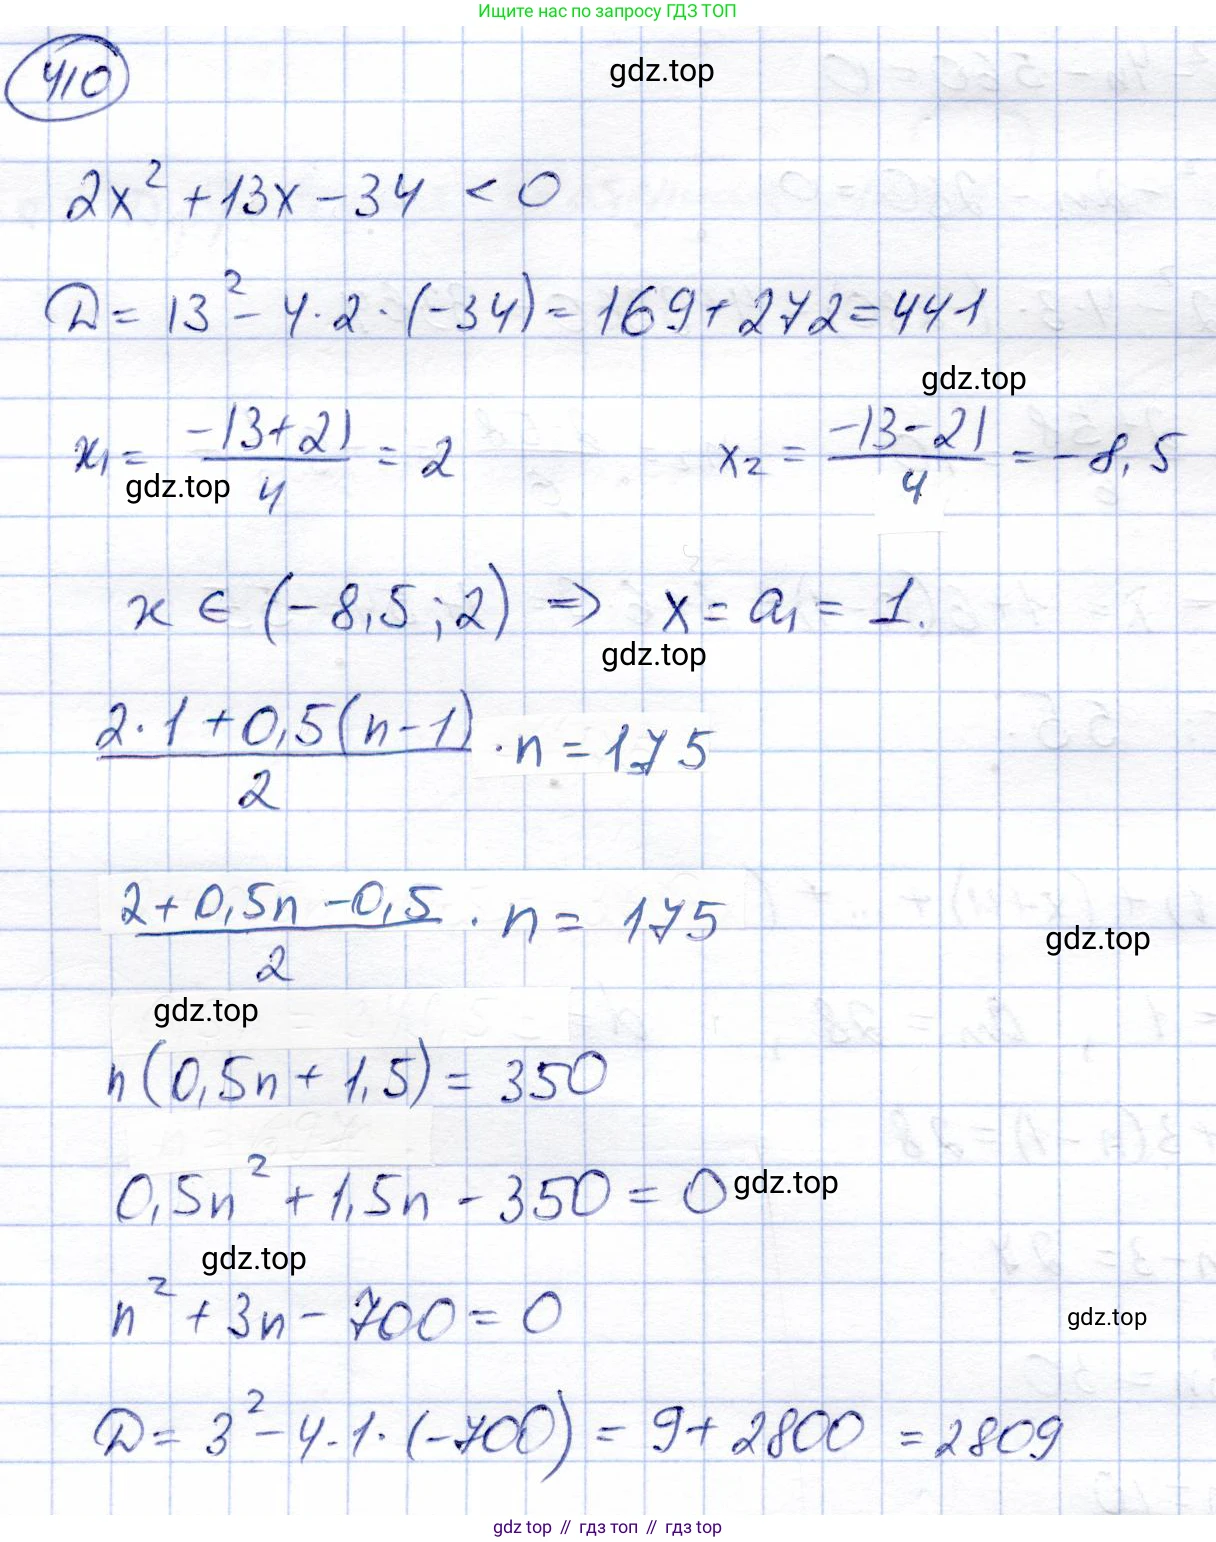 Ищите нас по запросу ГДЗ ТОП
410
gdz.top
2x² + 13x - 34 < 0
D = 13² - 4·2·(-34) = 169 + 272 = 441
gdz.top
x₁ = (-13+21)/4 = 2   x₂ = (-13-21)/4 = -8,5
gdz.top
x ∈ (-8,5; 2) ⇒ x = a₁ = 1.
gdz.top
(2·1 + 0,5(n-1))/2 · n = 175
(2 + 0,5n - 0,5)/2 · n = 175
gdz.top
gdz.top
n(0,5n + 1,5) = 350
0,5n² + 1,5n - 350 = 0
gdz.top
gdz.top
n² + 3n - 700 = 0
gdz.top
D = 3² - 4·1·(-700) = 9 + 2800 = 2809
gdz top // гдз топ // gdz top